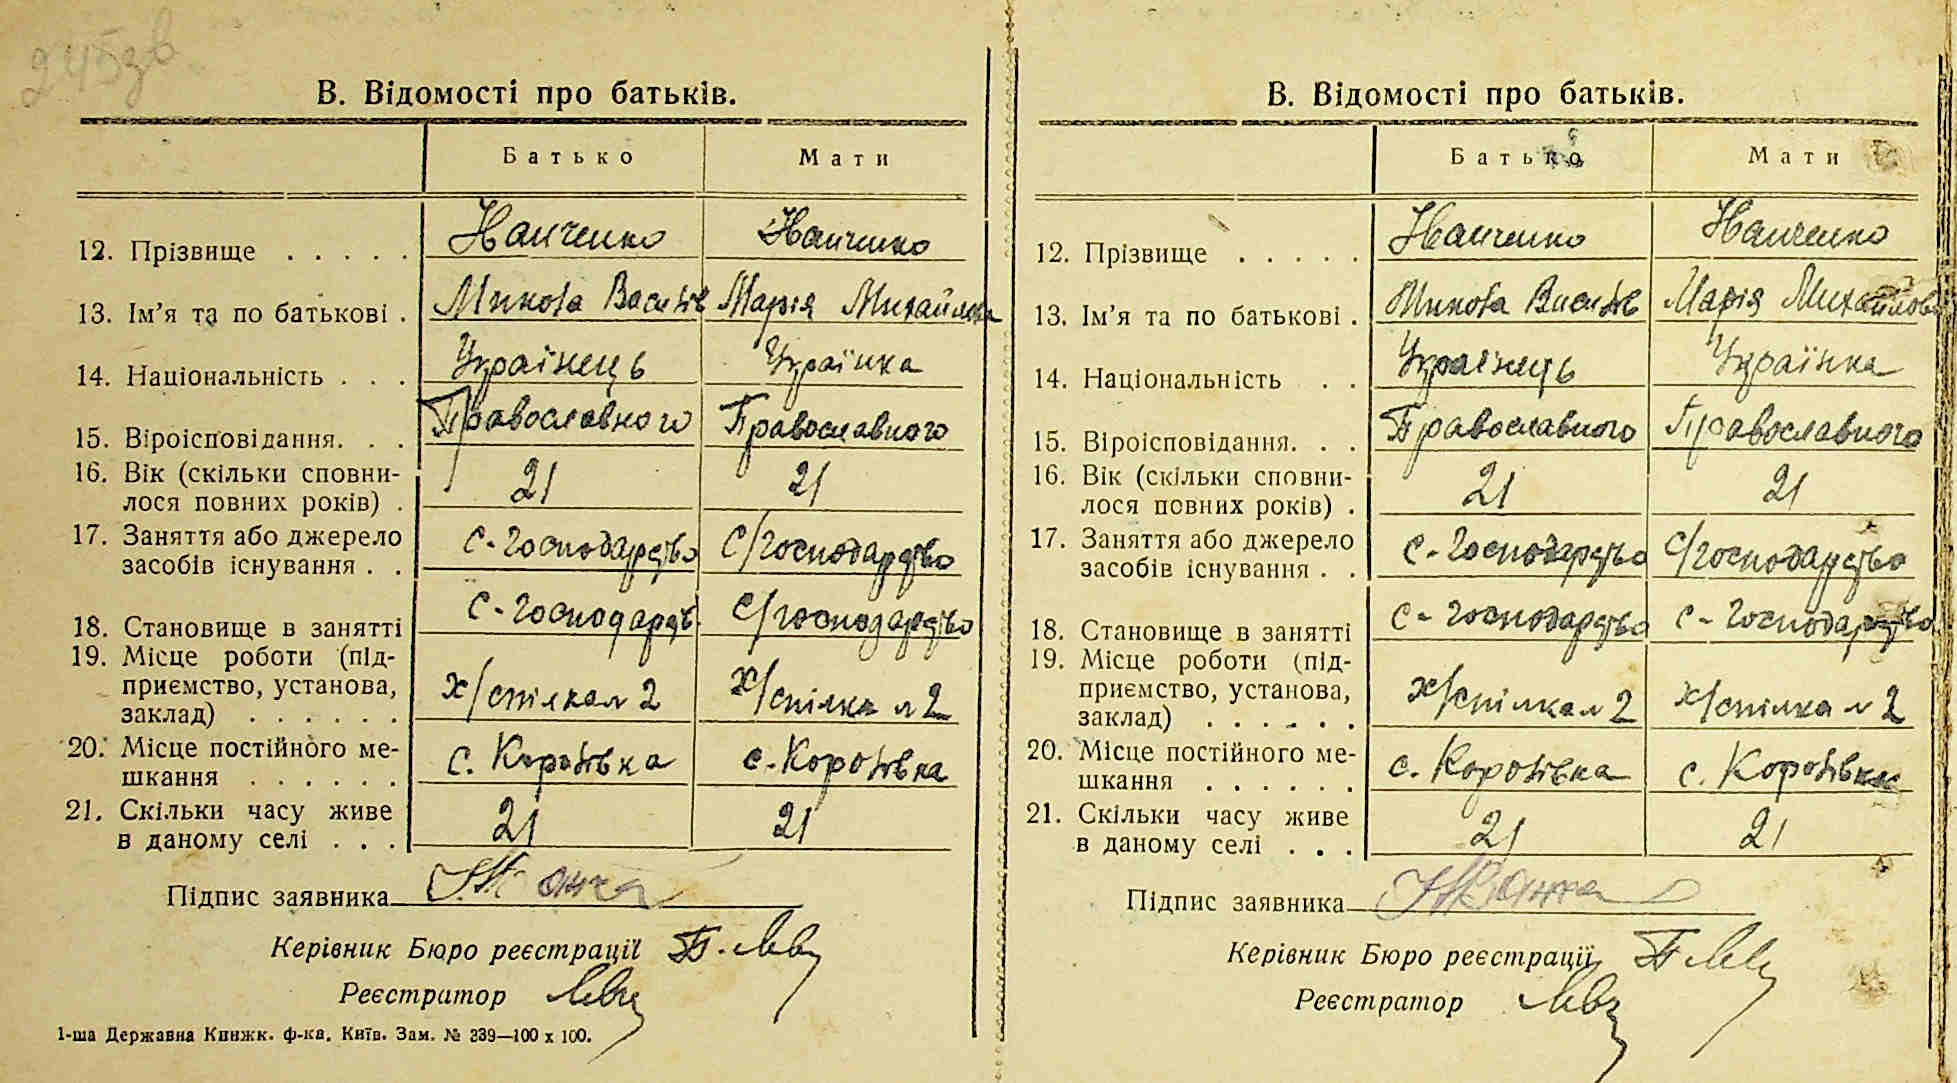 245зв
В. Відомості про батьків.
Батько Мати
12. Прізвище . . . . . Іванченко Іванченко
13. Ім’я та по батькові . Микола Василів Марія Михайлівна
14. Національність . . . Українець Українка
15. Віроісповідання. . . Православного Православного
16. Вік (скільки сповни-
лося повних років) . 21 21
17. Заняття або джерело
засобів існування . . с-господарство с/господарство
18. Становище в занятті с-господарств. с/господарство
19. Місце роботи (під-
приємство, установа,
заклад) . . . . . . х/спілка № 2 х/спілка № 2
20. Місце постійного ме-
шкання . . . . . . с. Коротівка с. Коротівка
21. Скільки часу живе
в даному селі . . . 21 21
Підпис заявника
Керівник Бюро реєстрації
Реєстратор
1-ша Державна Книжк. ф-ка. Київ. Зам. № 239—100 x 100.
В. Відомості про батьків.
Батько Мати
12. Прізвище . . . . . Іванченко Іванченко
13. Ім’я та по батькові . Микола Василів Марія Михайлов
14. Національність . . Українець Українка
15. Віроісповідання. . . Православного Православного
16. Вік (скільки сповни-
лося повних років) . 21 21
17. Заняття або джерело
засобів існування . . с-господарство с/господарство
18. Становище в занятті с-господарство с-господарство
19. Місце роботи (під-
приємство, установа,
заклад) . . . . . . х/спілка № 2 х/спілка № 2
20. Місце постійного ме-
шкання . . . . . . с. Коротівка с. Коротівка
21. Скільки часу живе
в даному селі . . . 21 21
Підпис заявника
Керівник Бюро реєстрації
Реєстратор